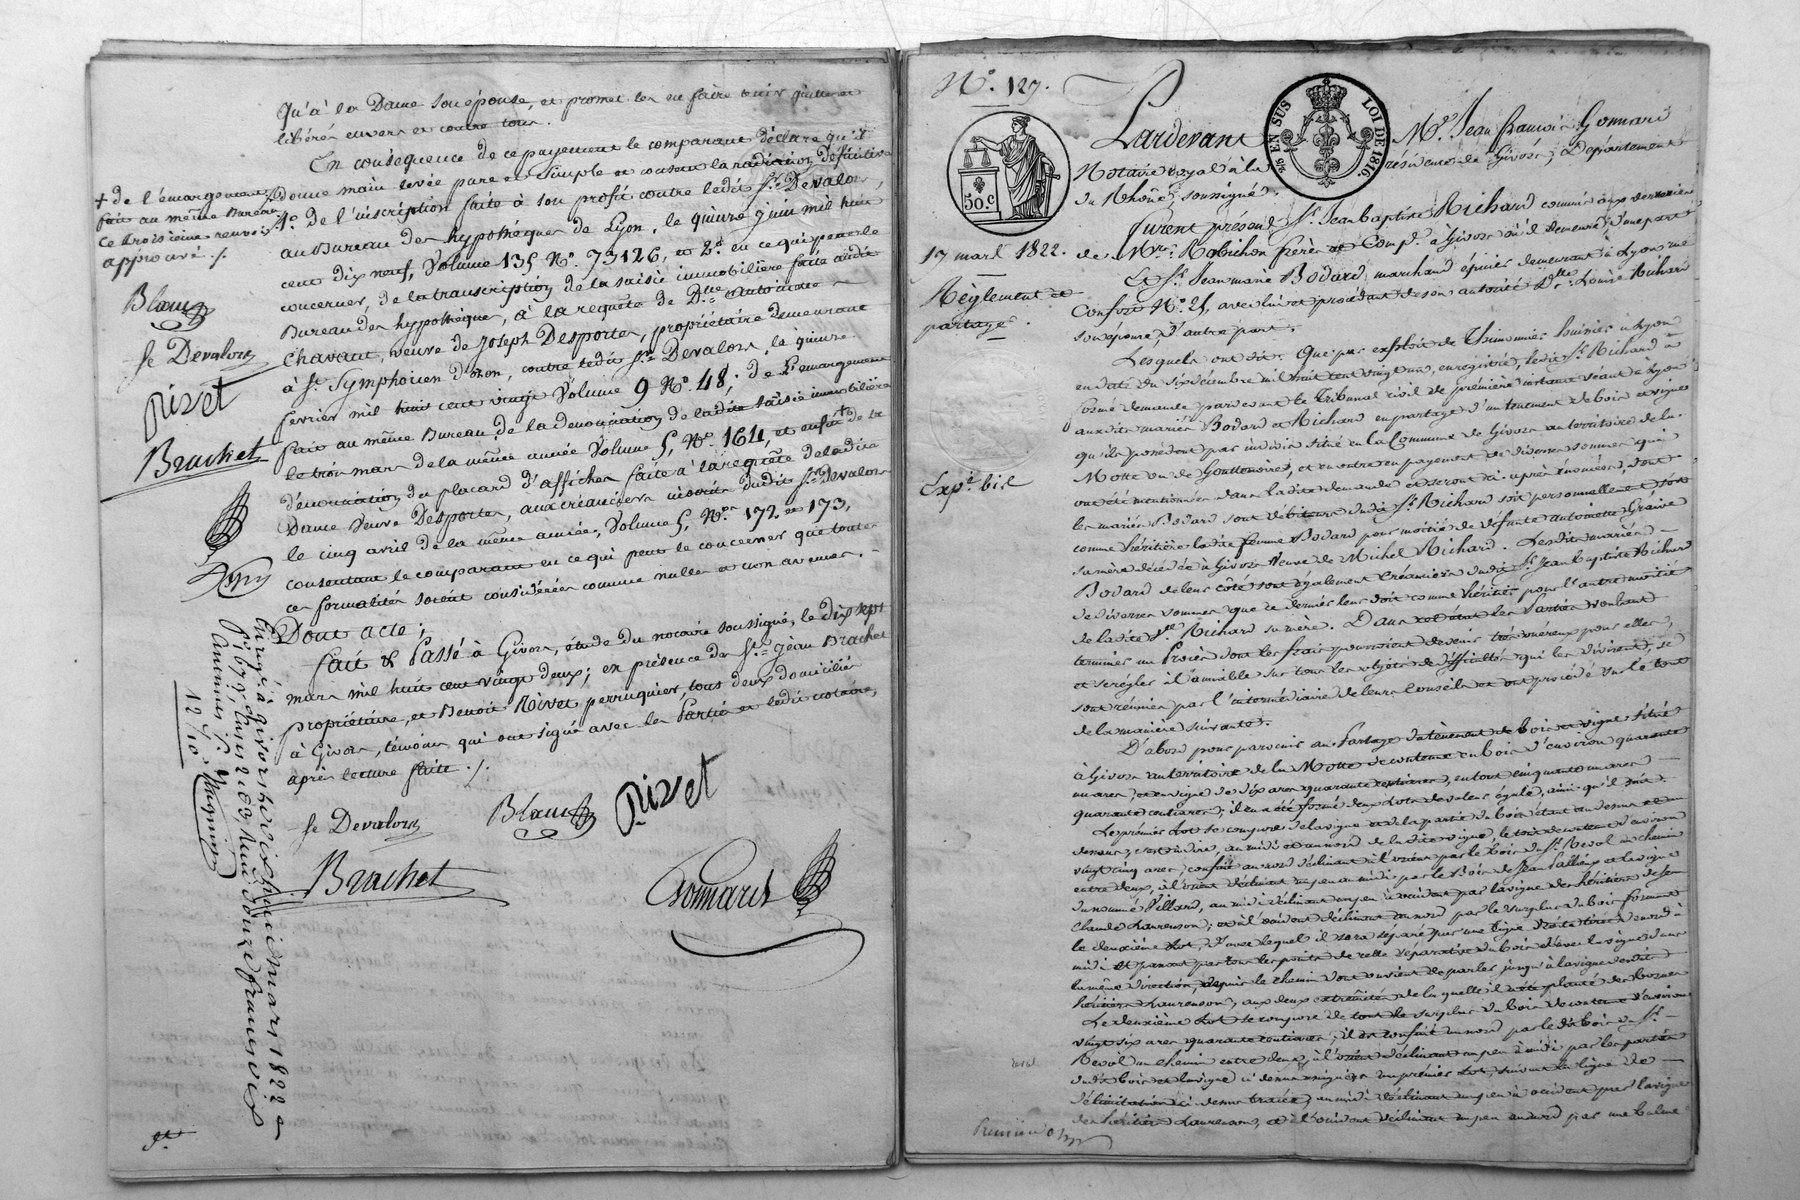 Qu'à la Dame son épouse, et promet les en faire tenir quittes et
libérés envers et contre tous.
En conséquence de ce payement le comparant déclare qu'il
donne main levée pure et simple et consent la radiation définitive
1.° de l'inscription faite à son profit contre ledit S.r Devalors,
au Bureau des hypothèques de Lyon, le quinze juin mil huit
cent dix neuf, Volume 135 N.° 73126, et 2.° en ce qui peut le
concerner, de la transcription de la saisie immobilière faite audit
Bureau des hypothèques, à la requête de D.lle antoinette
Chavant, veuve de Joseph Desportes, propriétaire demeurant
à S.t Symphorien d'ozon, contre ledit S.r Devalors, le quinze
février mil huit cent vingt Volume 9 N.° 48; de l'émargement
fait au même Bureau de la dénonciation de ladite saisie immobilière
le trois mars de la même année Volume 5, N.° 164, et enfin + de la
dénonciation du placard d'affiches faite à la requête de ladite
Dame Veuve Desportes, aux créanciers inscrits dudit S.r Devalors
le cinq avril de la même année, Volume 5, N.os 172 et 173,
consentant le comparant en ce qui peut le concerner que toutes
ces formalités soient considérées comme nulles et non avenues.
Dont acte;
fait & Passé à Givors, étude du notaire soussigné, le dix sept
mars mil huit cent vingt deux; en présence de S.rs Jean Brachet
propriétaire, et Benoit Rivet perruquier, tous deux domiciliés
à Givors, témoins qui ont signé avec les Parties et ledit notaire,
après lecture faite ./.
+ de l'émargement
fait au même Bureau
ce troisième renvoi
approuvé ./.
Blanc
fe Devalors
Rivet
Brachet
Enregé à Givors le dix huit mars 1822
12/10
fe Devalors
Blanc
Rivet
Brachet
Gonnard
N.° 127.
50.c
EN SUS
LOI DE 1816.
17 mars 1822.
Règlement et
partage.
Exp.é bis
Pardevant M.e Jean francois Gonnard
Notaire royal à la résidence de Givors, Département
du Rhône, soussigné.
furent présens S.r Jean baptiste Richard commis aux verreries
de M.rs Robichon frères et Comp.e à Givors où il demeure, d'une part
Et S.r Jean marie Bodard, marchand épicier demeurant à Lyon rue
Confort N.° 21, avec lui et procédant de son autorité D.e Louise Richard
son épouse, d'autre part.
Lesquels ont dit: Que par exploit de Thimonnier huissier à Lyon
en date du six décembre mil huit cent vingt un, enregistré, ledit S.r Richard a
formé demande pardevant le tribunal civil de première instance séant à Lyon
aux dits mariés Bodard et Richard en partage d'un tenement de bois et vigne
qu'ils possèdent par indivis situé en la Commune de Givors au territoire de la
Motte ou de Gouttenoire, et en outre en payement de diverses sommes qui
ont été mentionnées dans ladite demande et seront ci-après énoncées, dont
les mariés Bodard sont débiteurs dudit S.r Richard soit personnellement soit
comme héritière ladite femme Bodard pour moitié de défunte antoinette
sa mère décédée à Givors veuve de Michel Richard. Lesdits mariés
Bodard de leur côté sont également créanciers dudit S.r Jean baptiste Richard
de diverses sommes que ce dernier leur doit comme héritier pour l'autre moitié
de ladite V.e Richard sa mère. Dans cet état les Parties voulant
terminer un Procès dont les frais pourroient devenir très onéreux pour elles,
et se régler à l'amiable sur tous les objets de difficultés qui les divisent, se
sont réunies par l'intermédiaire de leurs Conseils et ont procédé sur le tout
de la manière suivante.
D'abord pour parvenir au Partage du tènement de bois et vigne situé
à Givors au territoire de la Motte de contenue en bois d'environ quarante
un ares, et en vigne de dix ares quarante centiares, en tout cinquante un ares
quarante centiares; il en a été formé deux lots de valeur égale, ainsi qu'il suit.
Le premier lot se compose de la vigne et de la partie du bois étant au dessus et au
dessous, c'est à dire, au midi et au nord de ladite vigne, le tout de contenue d'environ
vingt cinq ares; confiné au nord déclinant à l'orient par le bois du S.r Revol un chemin
entre deux, à l'orient déclinant un peu au midi par le Bois de Jean et la vigne
du nommé Villard, au midi déclinant un peu à occident par la vigne des héritiers de feu
Claude Laurenson, et à l'occident déclinant au nord par le surplus du bois formant
le deuxième lot, d'avec lequel il sera séparé par une ligne droite tirée du nord à
midi et passant par tous les points de celle séparative du bois d'avec la vigne dans
la même direction, depuis le chemin dont on vient de parler jusqu'à la vigne desdits
héritiers Laurenson, aux deux extrémités de laquelle il a été planté des bornes
Le deuxième lot se compose de tout le surplus du bois de contenue d'environ
vingt six ares quarante centiares; il est confiné au nord par le dit bois du S.r
Revol un chemin entre deux, à l'orient déclinant un peu à midi par les parties
dudit bois et la vigne ci dessus assignées au premier lot, suivant la ligne de
délimitation ci dessus tracée, au midi déclinant un peu à occident par la vigne
des héritiers Laurenson, et à l'occident déclinant un peu au nord par une balme